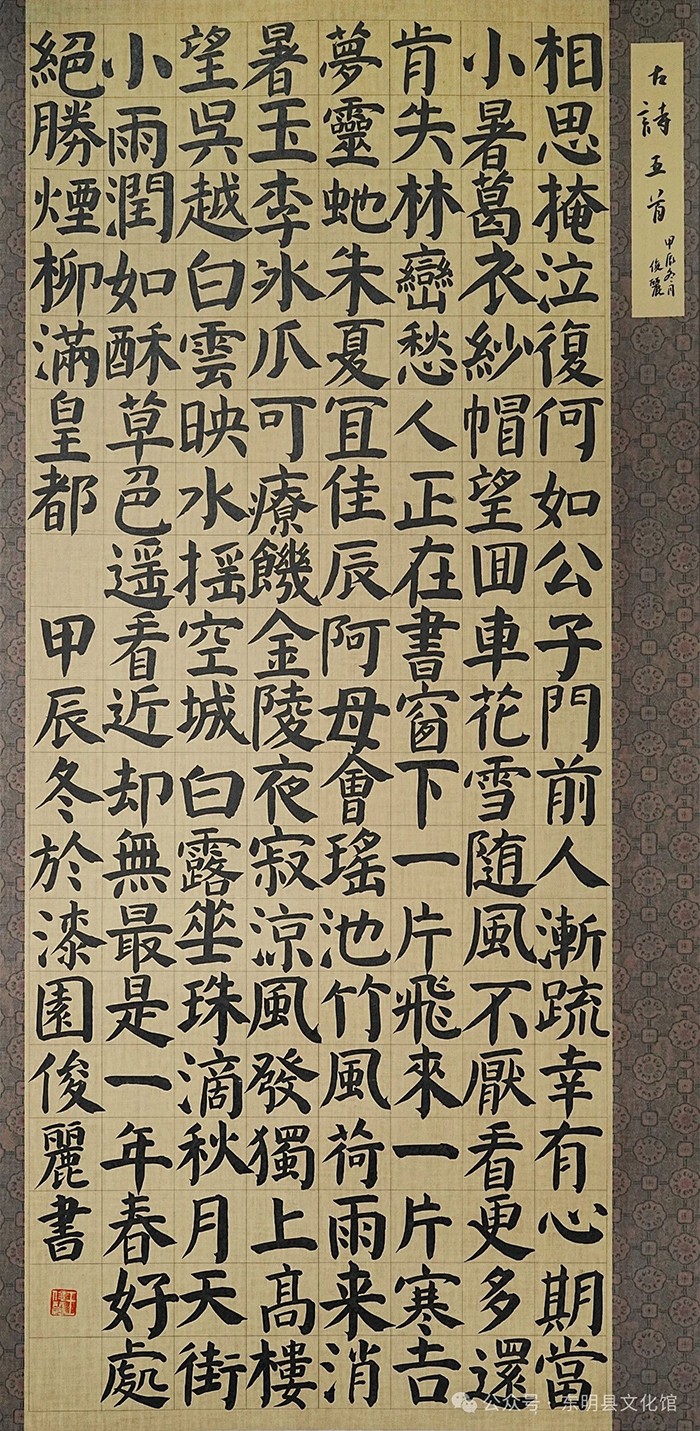 古詩五首
甲辰冬月
俊麗
相思掩泣復何如公子門前人漸疏幸有心期當
小暑葛衣紗帽望囬車花雪随風不厭看更多還
肯失林巒愁人正在書窗下一片飛來一片寒吉
夢靈虵朱夏宜佳辰阿母會瑤池竹風荷雨来消
暑玉李冰瓜可療饑金陵夜寂涼風發獨上高樓
望吳越白雲映水揺空城白露垂珠滴秋月天街
小雨潤如酥草色遥看近却無最是一年春好處
絕勝煙柳滿皇都 甲辰冬於漆園俊麗書
公众号 · 东明县文化馆